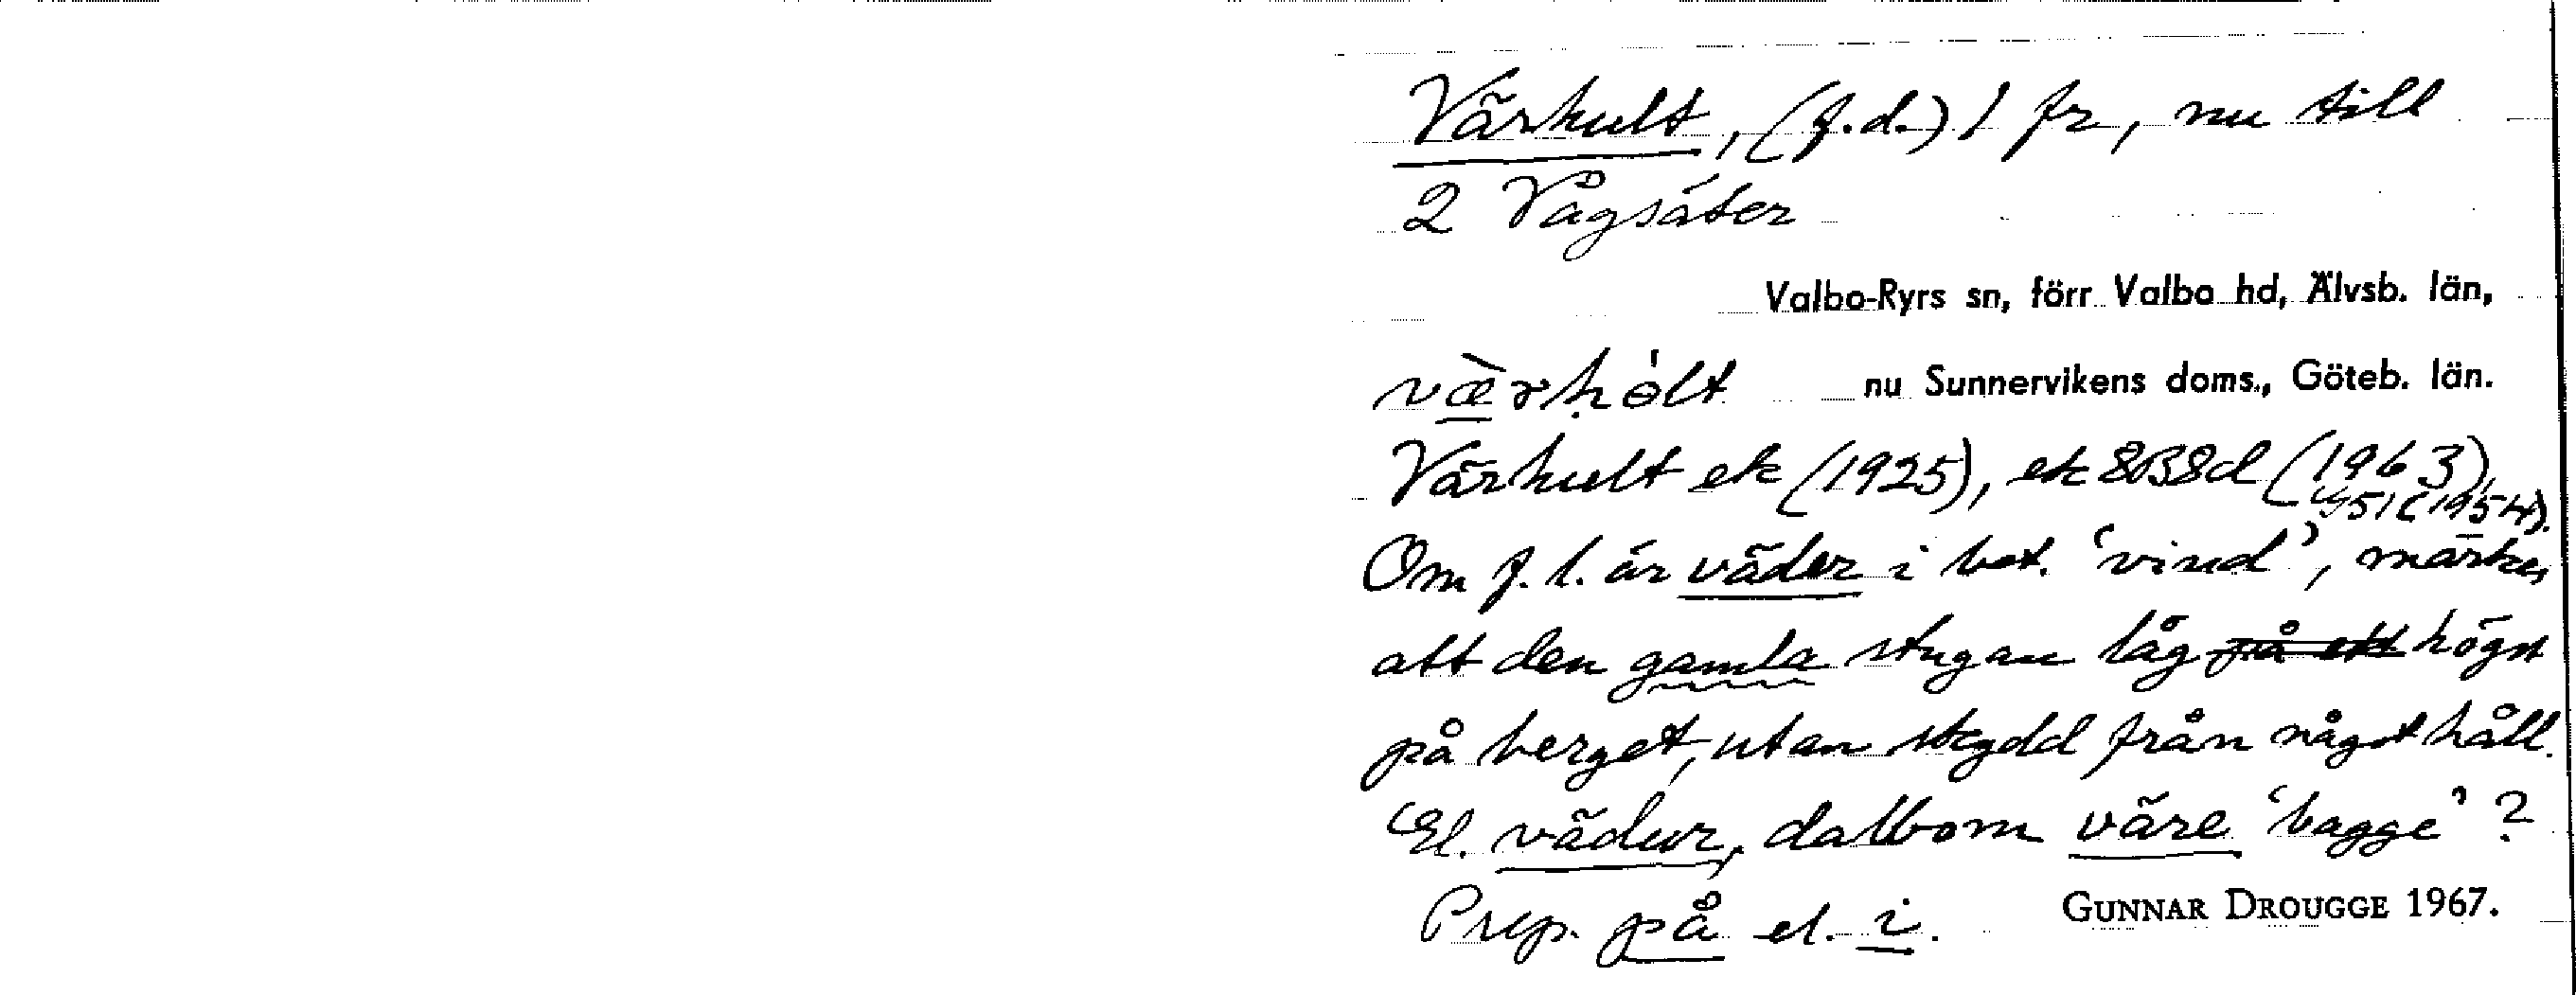 Värhult, (f.d.) l fr, nu till
2 Vågsäter
Valbo-Ryrs sn, förr Valbo hd, Älvsb. län,
væ̀rḥólt nu Sunnervikens doms., Göteb. län.
Värhult ek (1925), ek 8B8d (1963),
(1954).
Om f. l. är väder i bet. 'vind', märkes
att den gamla stugan låg på ett högst
på berget, utan skydd från något håll.
El. vädur, dalbom väre 'bagge'?
Prep. på el. i. GUNNAR DROUGGE 1967.